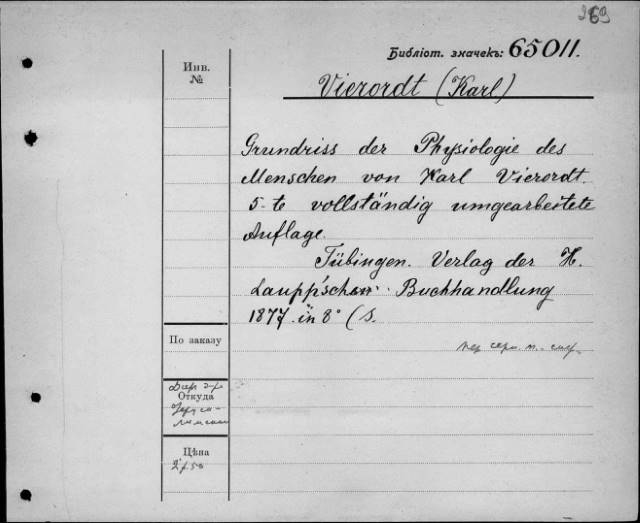 969
Библіот. значекъ: 65011.
Инв.
№
Vierordt (Karl)
Grundriss der Physiologie des
Menschen von Karl Vierordt.
5-te vollständig umgearbeitete
Auflage.
Tübingen. Verlag der H.
Laupp'schen Buchhandlung
1877. in 8° (S.
По заказу
пер. т.
Откуда
Цѣна
2 р. 50